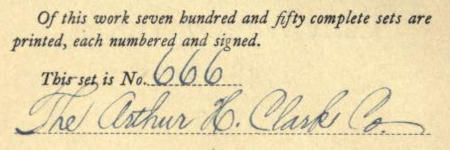 Of this work seven hundred and fifty complete sets are
printed, each numbered and signed.
This set is No. 666
The Arthur H. Clark Co.